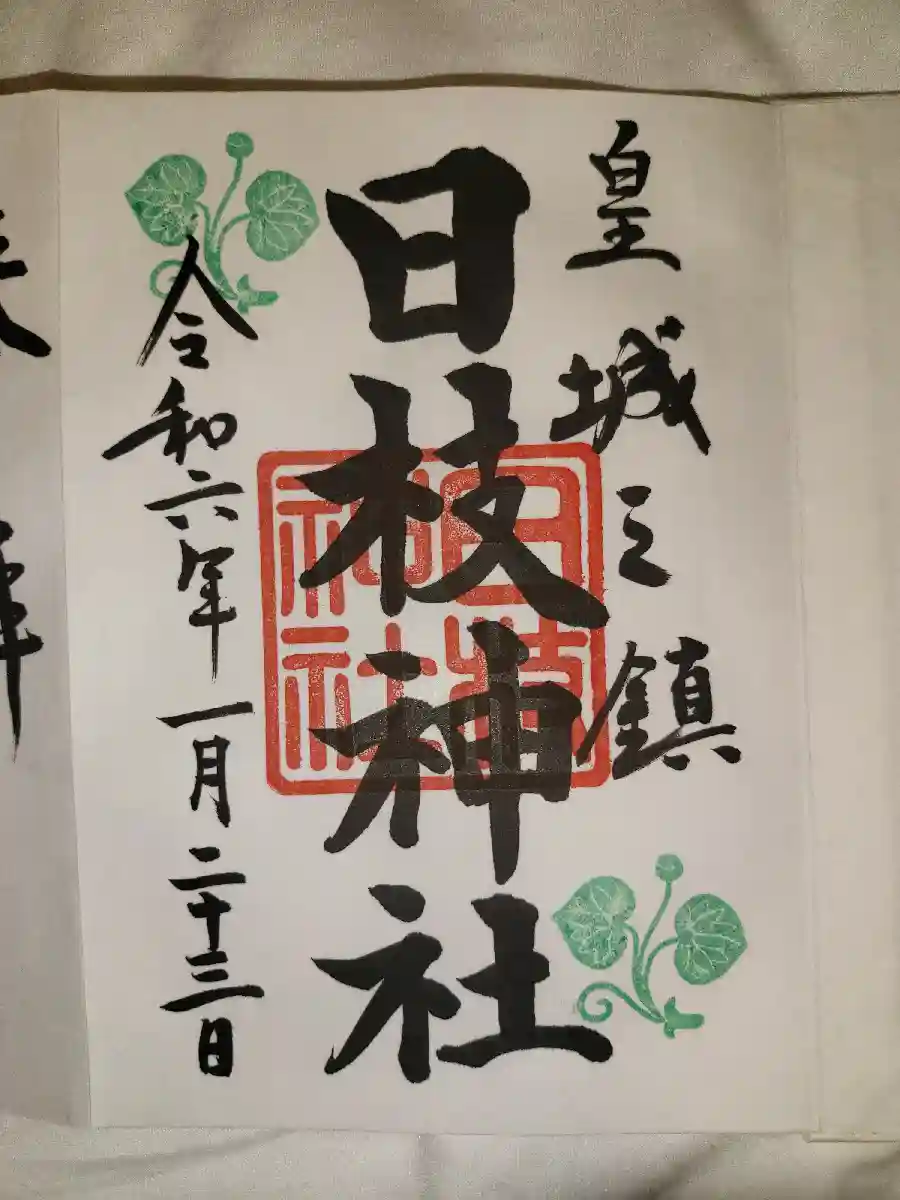 皇城之鎮
日枝神社
日枝神社
令和六年一月二十三日